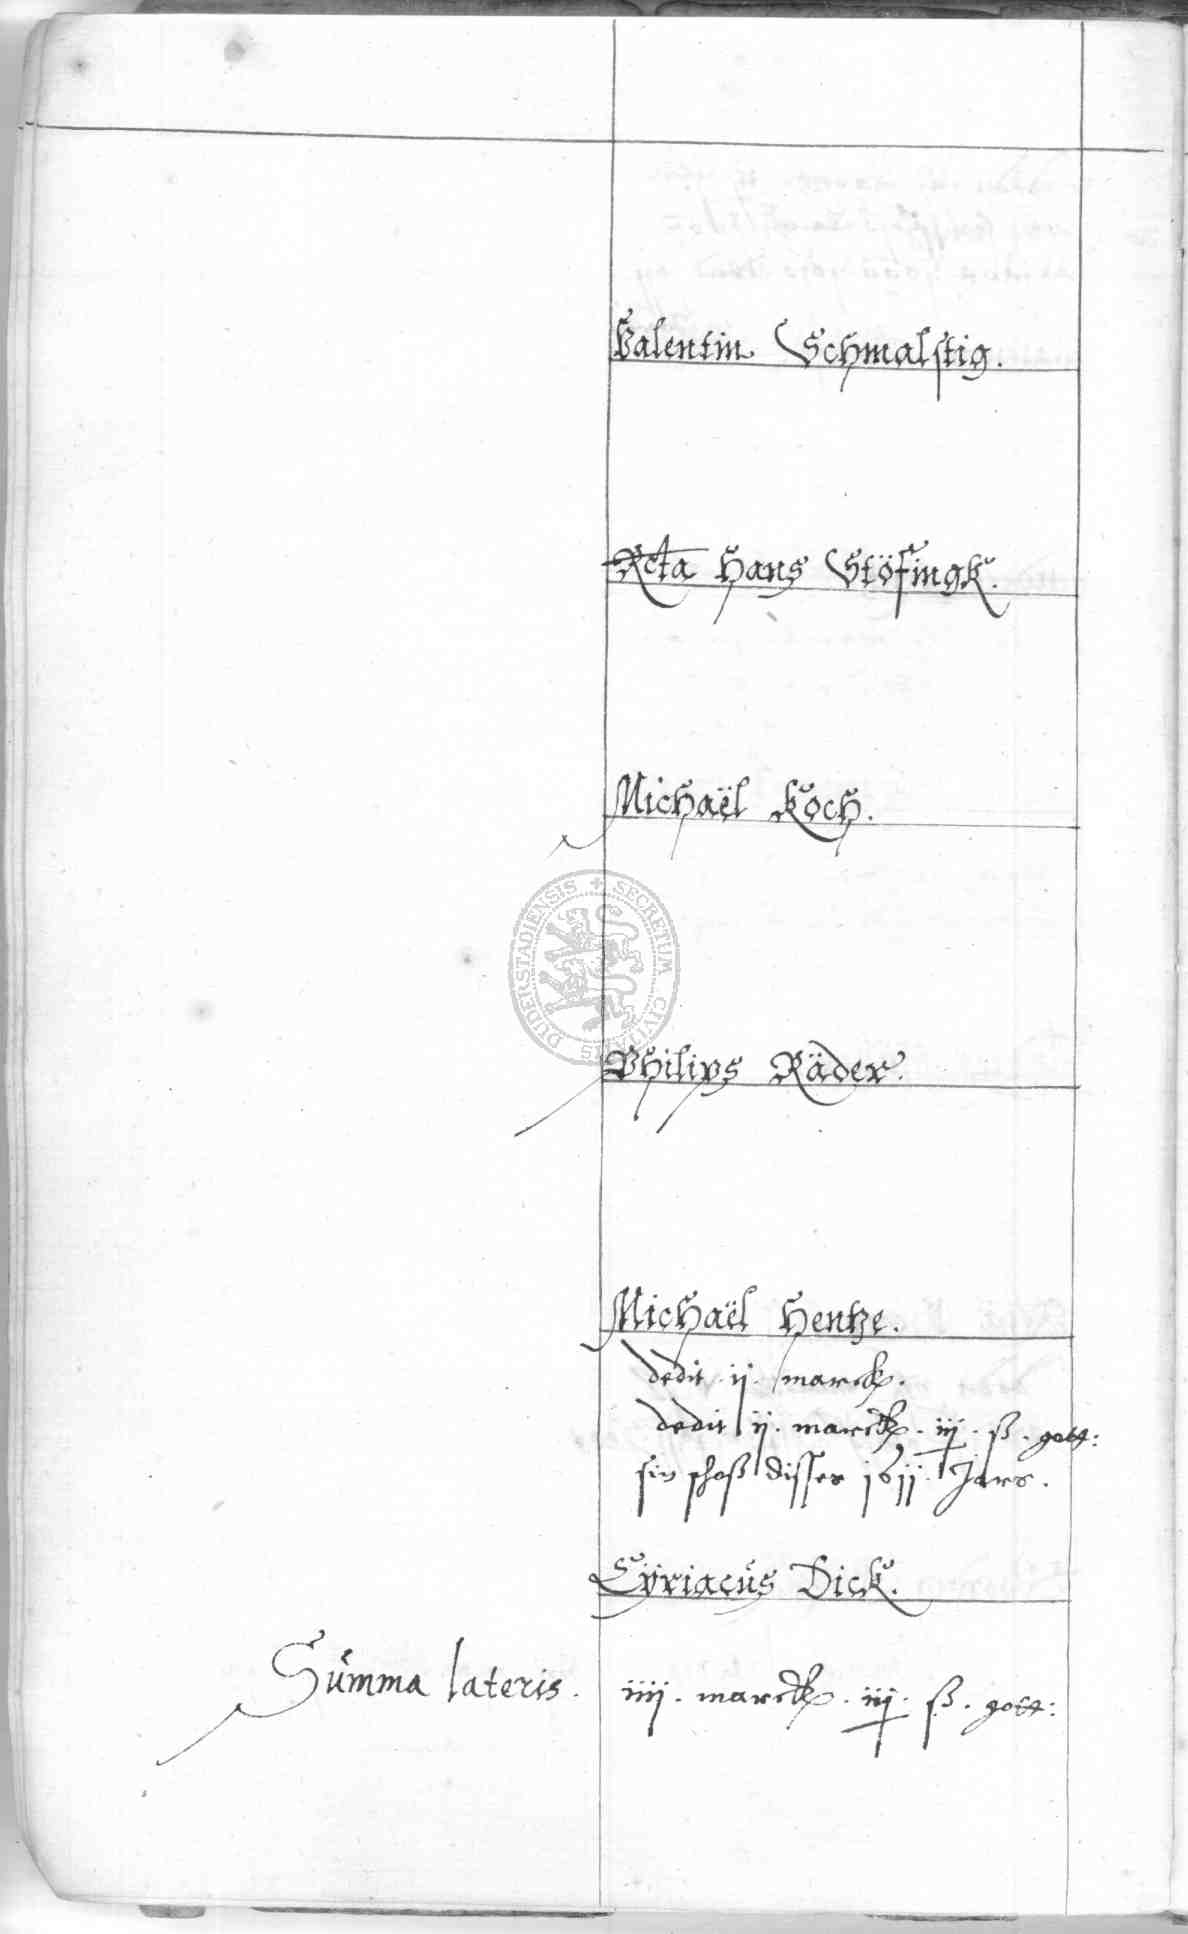 Valentin Schmalstig.
Rcta Hans Stöfingk.
Michaël Koch.
SECRETUM CIVITATIS DUDERSTADIENSIS
Philips Räder.
Michaël Hentze.
dedit ij. marck.
dedit ij. marck. iij. ß. gott:
sin schoß disser 1611. Jars.
Cÿriacus Dick.
Summa lateris. iiij. marck. iij. ß. gott: